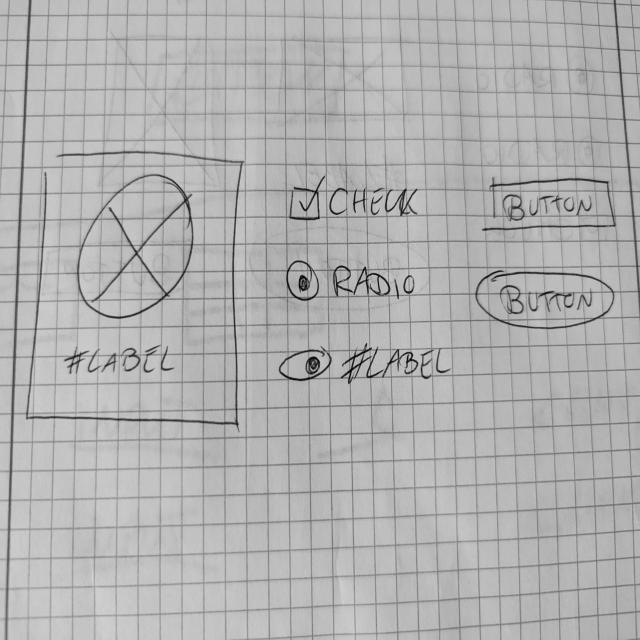 #LABEL
CHECK
RADIO
#LABEL
BUTTON
BUTTON